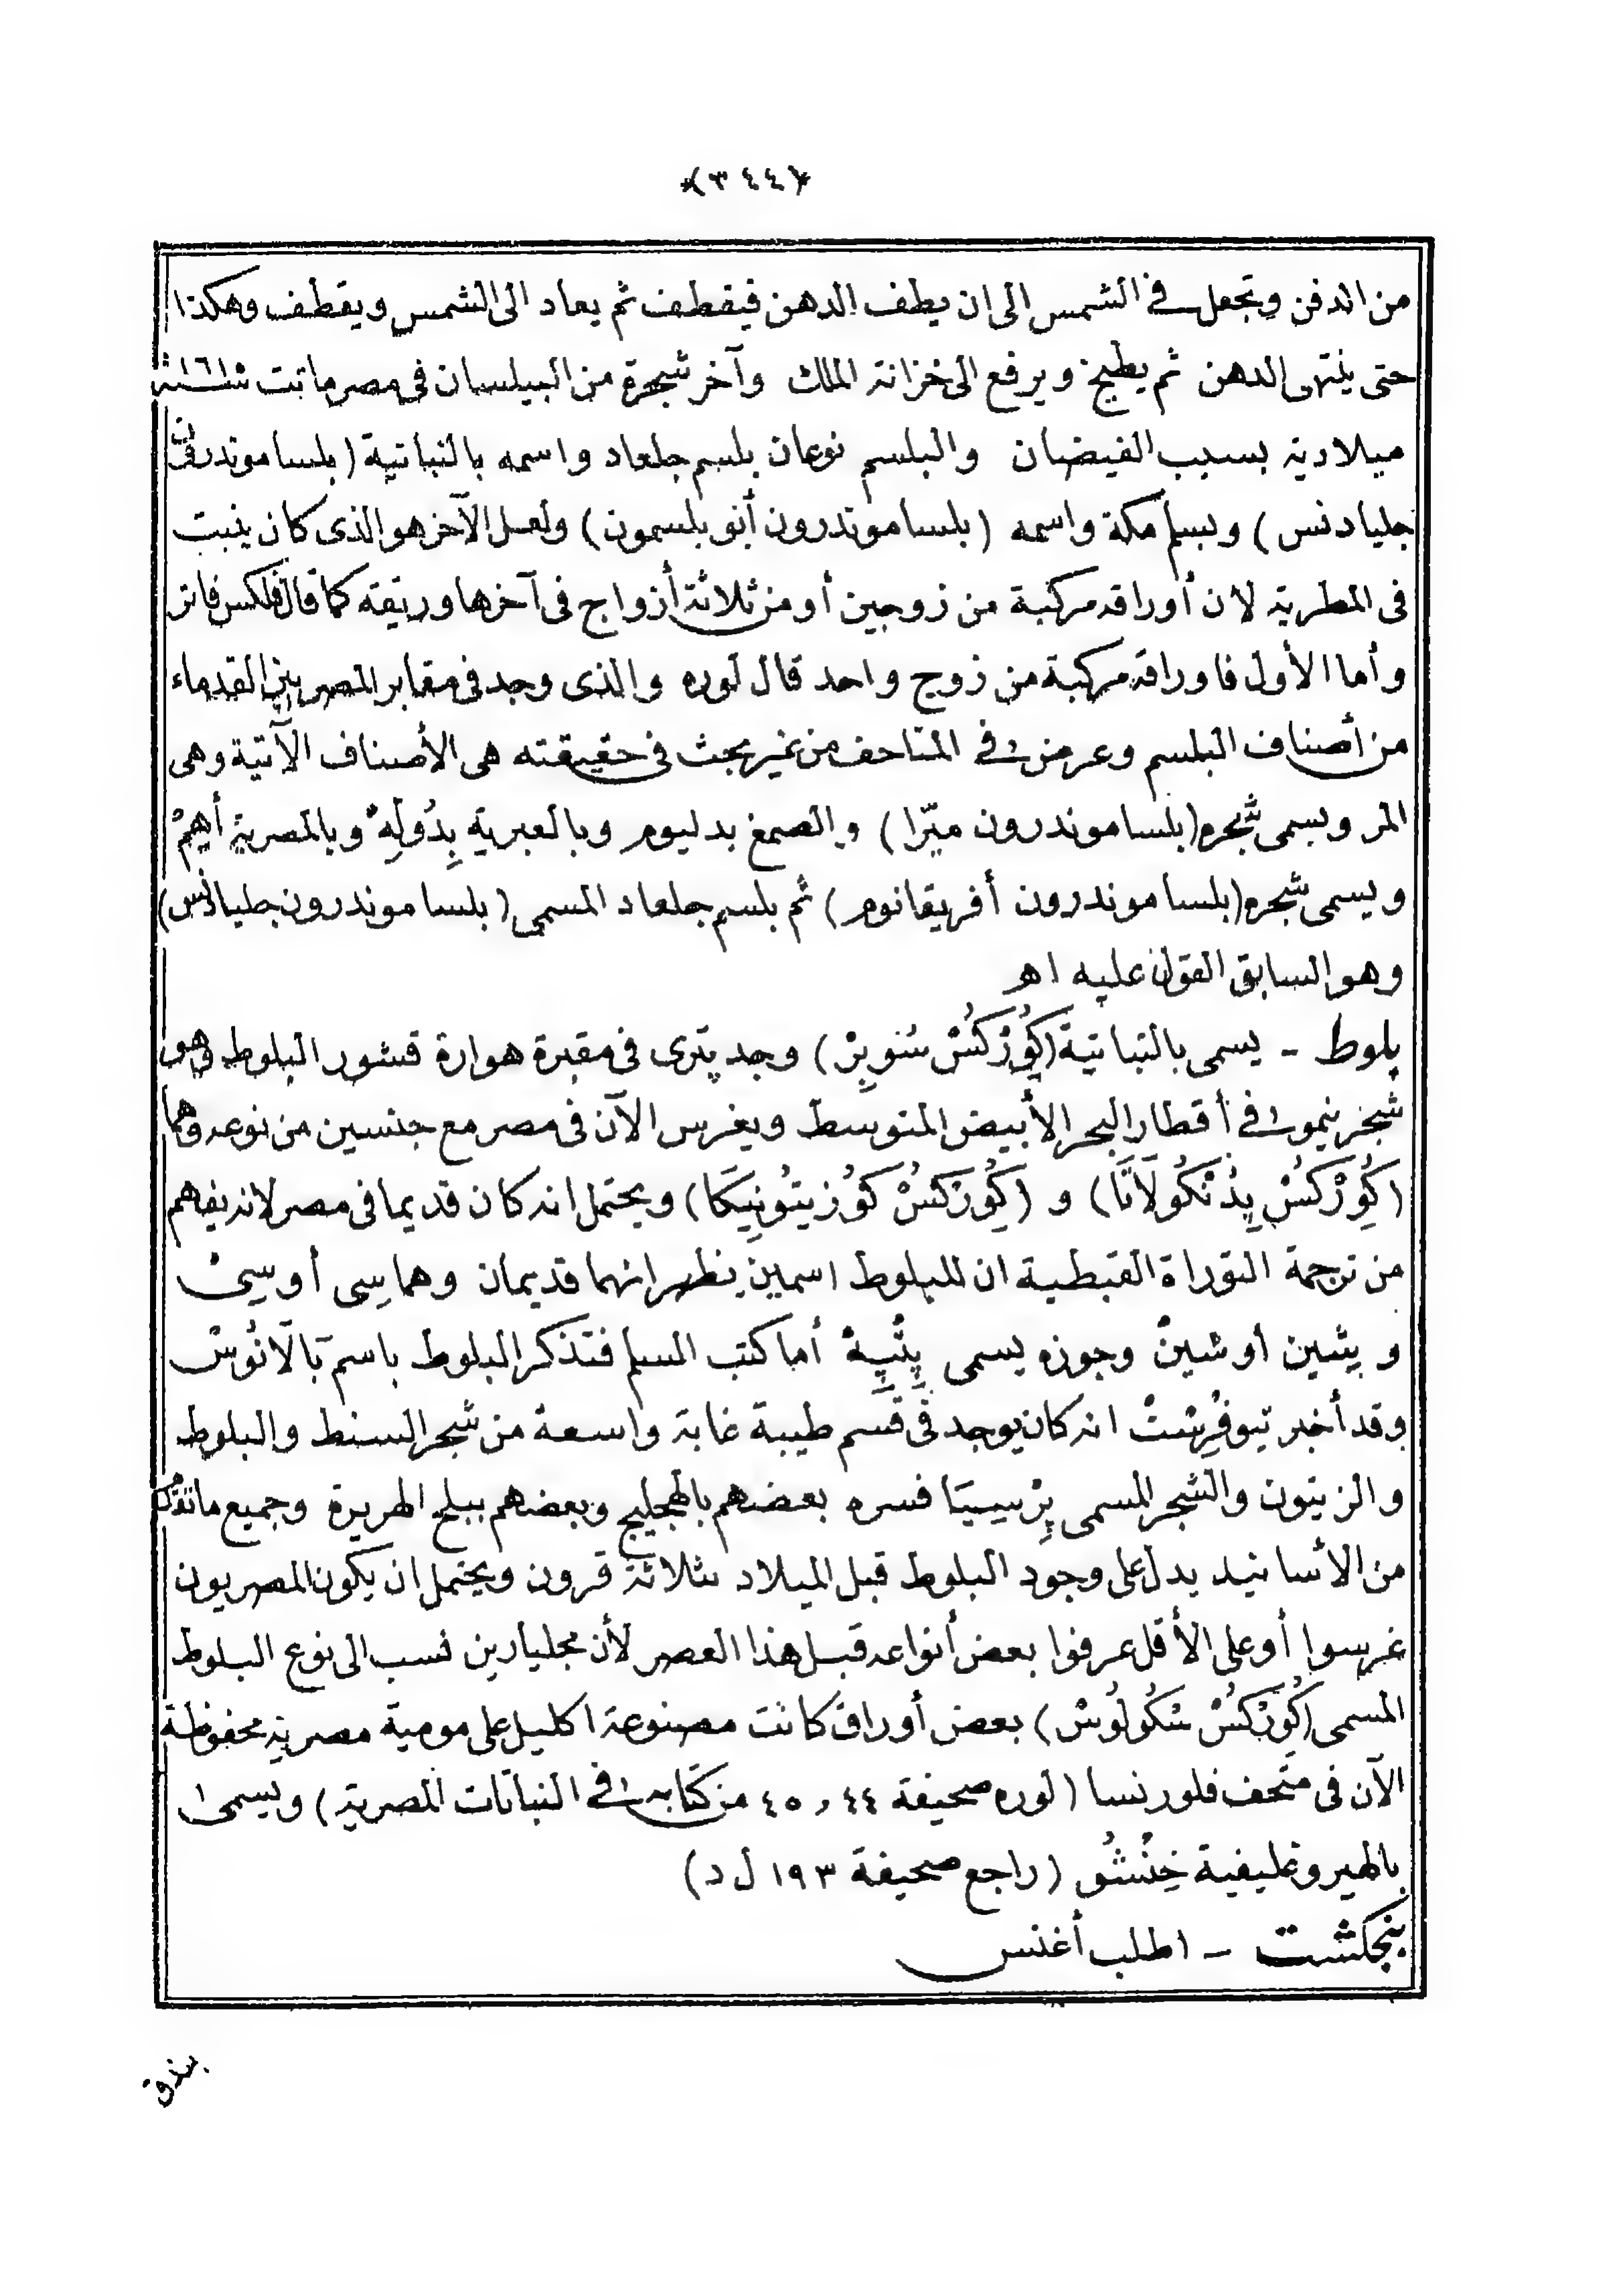 *(٣٤٤)*
من الدفن وتجعل فى الشمس الى ان يطف الدهن فيقطف ثم يعاد الى الشمس ويقطف وهكذا
حتى ينتهى الدهن ثم يطبخ ويرفع الى خزانة الملك وآخر شجرة من البيلسان فى مصر ماتت سنة ١٦١٥
ميلادية بسبب الفيضان والبلسم نوعان بلسم جلعاد واسمه بالنباتية (بلساموندرون
جليادنس) وبسلم مكة واسمه (بلساموندرون أنو بلسمون) ولعل الآخر هو الذى كان ينبت
فى المطرية لان أوراقه مركبة من زوجين أو من ثلاثة أزواج فى آخرها وريقة كما قال فلكس فاتر
وأما الأول فاوراقه مركبة من زوج واحد قال لوره والذى وجد فى مقابر المصريين القدماء
من أصناف البلسم وعرض فى المتاحف من غير بحث فى حقيقته هى الأصناف الآتية وهى
المر ويسمى شجره (بلساموندرون ميرّا) والصمغ بدليوم وبالعبرية بِدُولِهْ وبالمصرية أهِمْ
ويسمى شجره (بلساموندرون أفريقانوم) ثم بلسم جلعاد المسمى (بلساموندرون جليادنس)
وهو السابق القول عليه اهـ
بلوط - يسمى بالنباتية (كُوِرْكُسْ سُوبِرْ) وجد پترى فى مقبرة هوارة قشور البلوط وهو
شجر ينمو فى أقطار البحر الأبيض المتوسط ويغرس الآن فى مصر مع جنسين من نوعه وهما
(كُوِرْكُسْ پِدُنْكُولَاتَا) و (كُوِرْكُسْ كُورْزِيتُونِيكَا) ويحتمل انه كان قديما فى مصر لانه يفهم
من ترجمة التوراة القبطية ان للبلوط اسمين يظهر انهما قديمان وهما سِى أو سِىْ
و پثين أو شينْ وجوزه يسمى پِثْپِهْ أما كتب السلم فتذكر البلوط باسم بَالَانُوسْ
وقد أخبر تيوفْرِسْتْ انه كان يوجد فى قسم طيبة غابة واسعة من شجر السنط والبلوط
والزيتون والشجر المسمى پِرْسِيَا فسره بعضهم بالهجليج وبعضهم ببلح الهريرة وجميع ما تقدم
من الأسانيد يدل على وجود البلوط قبل الميلاد بثلاثة قرون ويحتمل ان يكون المصريون
غرسوا أو على الأقل عرفوا بعض أنواعه قبل هذا العصر لأن مجليارين نسب الى نوع البلوط
المسمى (كُوِرْكُسْ سْكُولُوسْ) بعض أوراق كانت مصنوعة اكليل على مومية مصرية محفوظة
الآن فى متحف فلورنسا (لوره صحيفة ٤٤ و ٤٥ من كتابه فى النباتات المصرية) ويسمى
بالهيروغليفية خِنْشُو (راجع صحيفة ١٩٣ ل د)
بنجكشت - اطلب أغنس
بندق